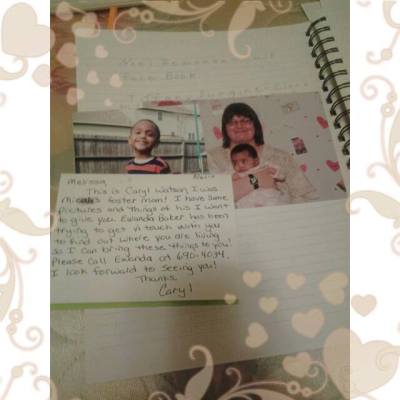 Face Book
Melissa,
This is Caryl Watson, I was
foster mom! I have some
pictures and things of his I want
to give you. Ewanda Baker has been
trying to get in touch with you
to find out where you are living
so I can bring these things to you!
Please call Ewanda at 690-4034.
I look forward to seeing you!
Thanks
Caryl